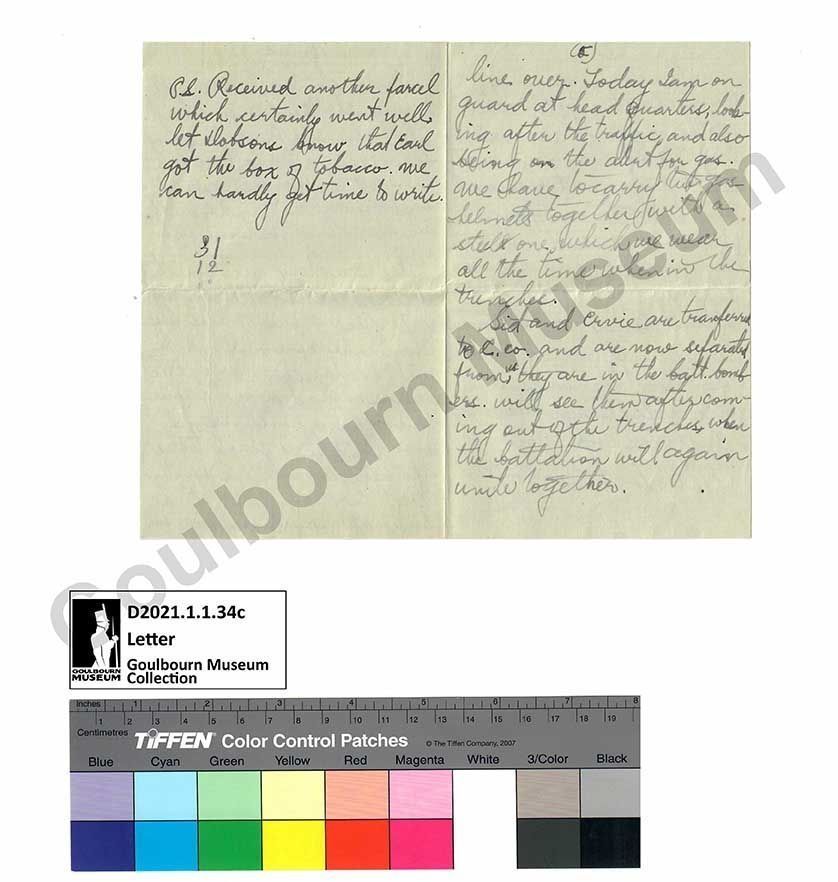 P.S. Received another parcel
which certainly went well.
let Dobsons know that Earl
got the box of tobacco. we
can hardly get time to write.
31
12
(5)
line over. Today I am on
guard at head quarters, look-
ing after the traffic, and also
being on the alert for gas.
we have to carry two gas
helmets together with a
steel one, which we wear
all the time when in the
trenches.
Sid and Ervie are transferred
to C. co. and are now separated
from us they are in the batt. bomb
ers. will see them after com-
ing out of the trenches, when
the battalion will again
unite together.
Goulbourn Museum
GOULBOURN
MUSEUM
D2021.1.1.34c
Letter
Goulbourn Museum
Collection
Inches 1 2 3 4 5 6 7 8
1 2 3 4 5 6 7 8 9 10 11 12 13 14 15 16 17 18 19
Centimetres
TIFFEN Color Control Patches © The Tiffen Company, 2007
Blue Cyan Green Yellow Red Magenta White 3/Color Black